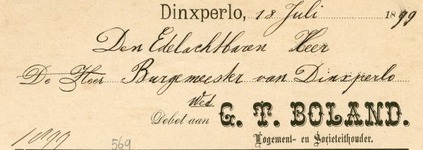 Dinxperlo, 18 Juli 1899
Den Edelachtbaren Heer
De Heer Burgemeester van Dinxperlo
Wed.
Debet aan G. T. BOLAND.
Logement- en Societeithouder.
1899
569